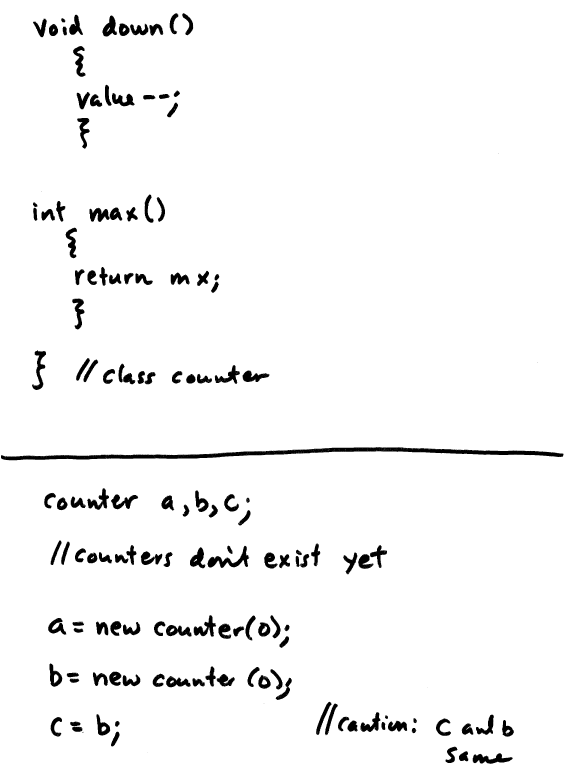 void down()
{
value--;
}
int max()
{
return mx;
}
} // class counter
counter a,b,c;
// counters don't exist yet
a = new counter(0);
b = new counter(0);
c = b; // caution: c and b
same